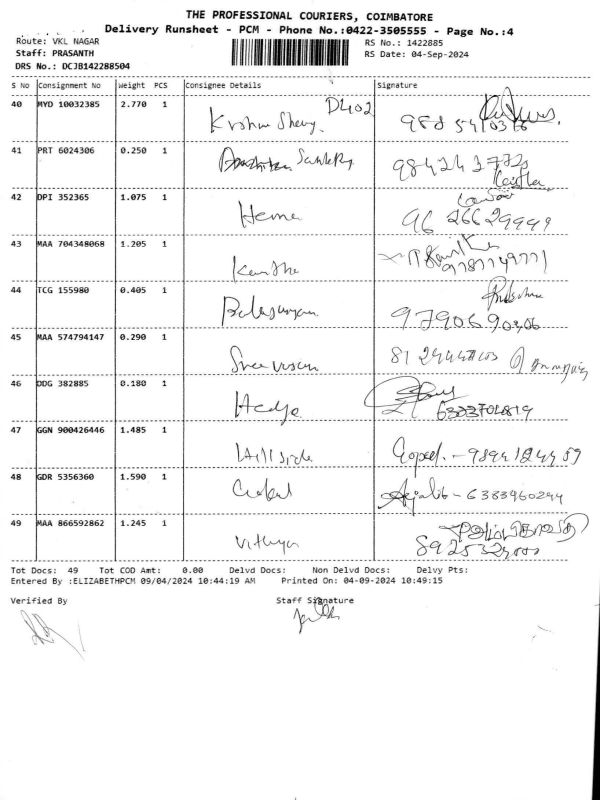 THE PROFESSIONAL COURIERS, COIMBATORE
Delivery Runsheet - PCM - Phone No.:0422-3505555 - Page No.:4
Route: VKL NAGAR RS No.: 1422885
Staff: PRASANTH RS Date: 04-Sep-2024
DRS No.: DCJB142288504
S No Consignment No Weight PCS Consignee Details Signature
40 MYD 10032385 2.770 1 D402
Krishna
41 PRT 6024306 0.250 1
42 DPI 352365 1.075 1
Hema 96 26629999
43 MAA 704348068 1.205 1
Kavitha 9787749771
44 TCG 155980 0.405 1
9790690306
45 MAA 574794147 0.290 1
46 DDG 382885 0.180 1
Hedge 6383701819
47 GGN 900426446 1.485 1
Hill side Gopal. - 9894124459
48 GDR 5356360 1.590 1
Gokul - 6383960244
49 MAA 866592862 1.245 1
Vithya
Tot Docs: 49 Tot COD Amt: 0.00 Delvd Docs: Non Delvd Docs: Delvy Pts:
Entered By :ELIZABETHPCM 09/04/2024 10:44:19 AM Printed On: 04-09-2024 10:49:15
Verified By Staff Signature